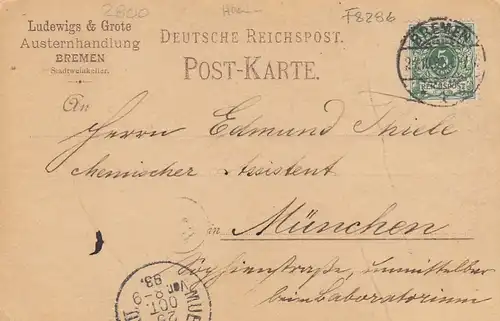 2800
F8286
Ludewigs & Grote
Austernhandlung
BREMEN
Stadtweinkeller.
DEUTSCHE REICHSPOST.
POST-KARTE.
BREMEN
5
REICHSPOST
An
Herrn Edmund Thiele
chemischer Assistent
in München
Sophienstraße, unmittelbar
beim Laboratorium
MUE
OCT.
8-9
93.